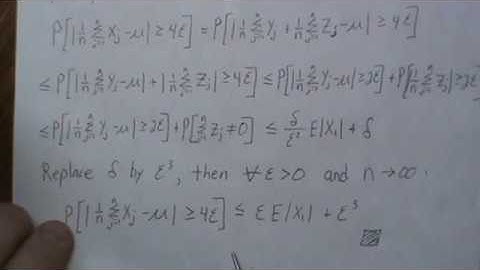 P[|1/n Σ_{j=1}^n X_j - μ| ≥ 4ε] = P[|1/n Σ_{j=1}^n Y_j + 1/n Σ_{j=1}^n Z_j - μ| ≥ 4ε]
≤ P[|1/n Σ_{j=1}^n Y_j - μ| + |1/n Σ_{j=1}^n Z_j| ≥ 4ε] ≤ P[|1/n Σ_{j=1}^n Y_j - μ| ≥ 2ε] + P[|1/n Σ_{j=1}^n Z_j| ≥ 2ε]
≤ P[|1/n Σ_{j=1}^n Y_j - μ| ≥ 2ε] + P[Σ_{j=1}^n Z_j ≠ 0] ≤ δ/ε² E|X_1| + δ
Replace δ by ε³, then ∀ ε > 0 and n → ∞.
P[|1/n Σ_{j=1}^n X_j - μ| ≥ 4ε] ≤ ε E|X_1| + ε³